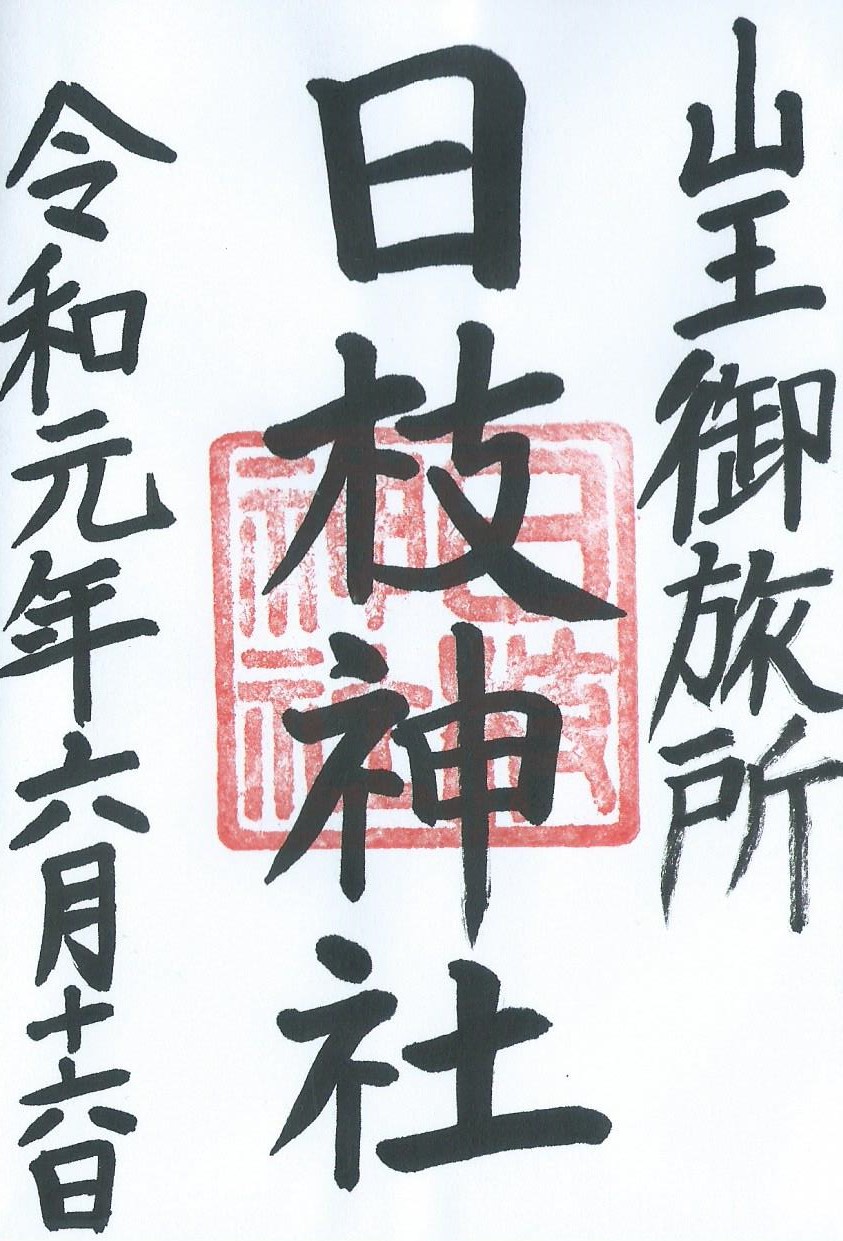 山王御旅所
日枝神社
日枝
神社
令和元年六月十六日